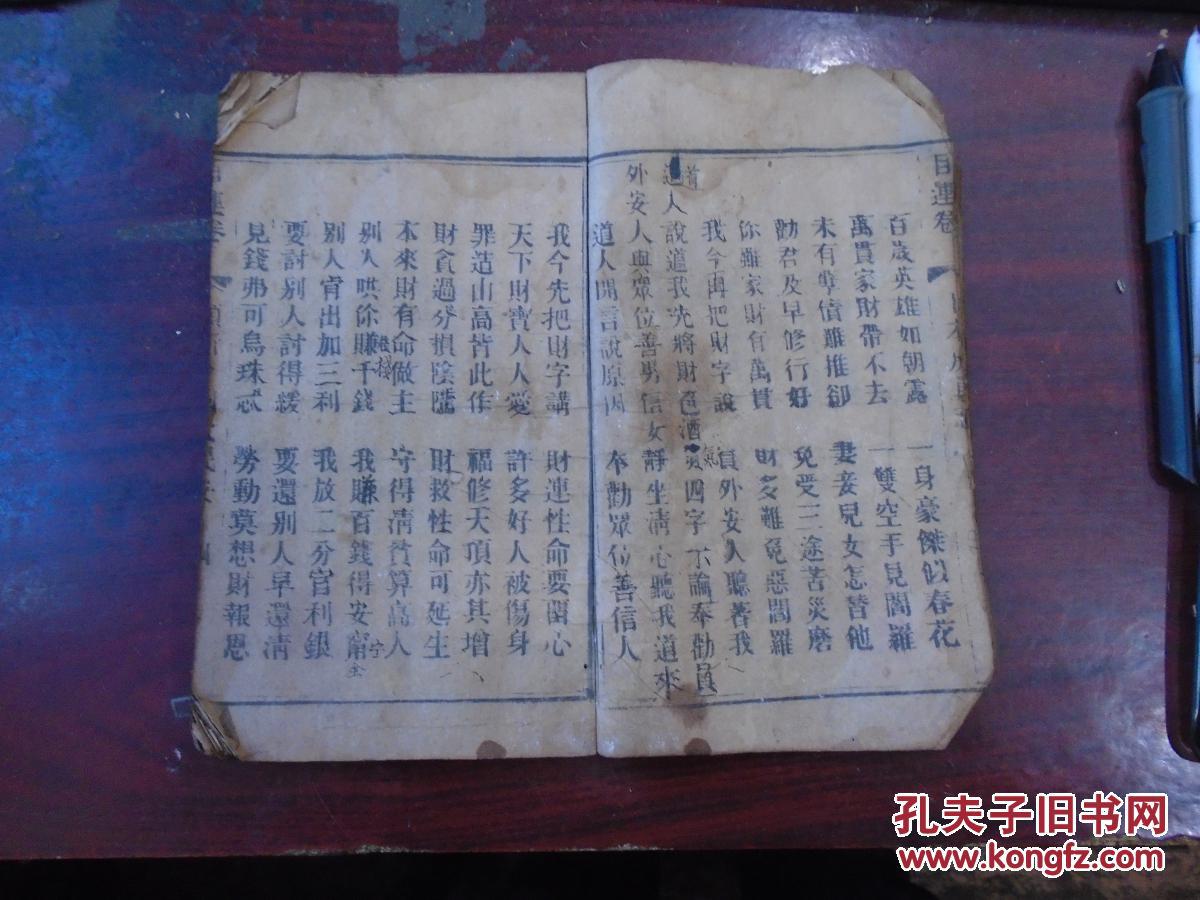 目連卷
百歲英雄如朝露 一身豪傑似春花
萬貫家財帶不去 一雙空手見閻羅
未有孽債難推卻 妻妾兒女怎替他
勸君及早修行好 免受三途苦災磨
你雖家財有萬貫 財多難免惡閻羅
我今再把財字說 員外安人聽著我
道人說道我先將財色酒 四字 不論奉勸員
外安人與眾位善男信女靜坐清心聽我道來
道人開言說原因 奉勸眾位善信人
我今先把財字講 財連性命要關心
天下財寶人人愛 許多好人被傷身
罪造山高皆此作 福修天項亦其增
財貪過分損陰騭 財救性命可延生
本來財有命做主 守得清貧算高人
別人哄你賺千錢 我賺百錢得安甯
別人肯出加三利 我放二分官利銀
要討別人討得緩 要還別人早還清
見錢弗可烏珠忒 勞動莫想財報恩
孔夫子旧书网
www.kongfz.com